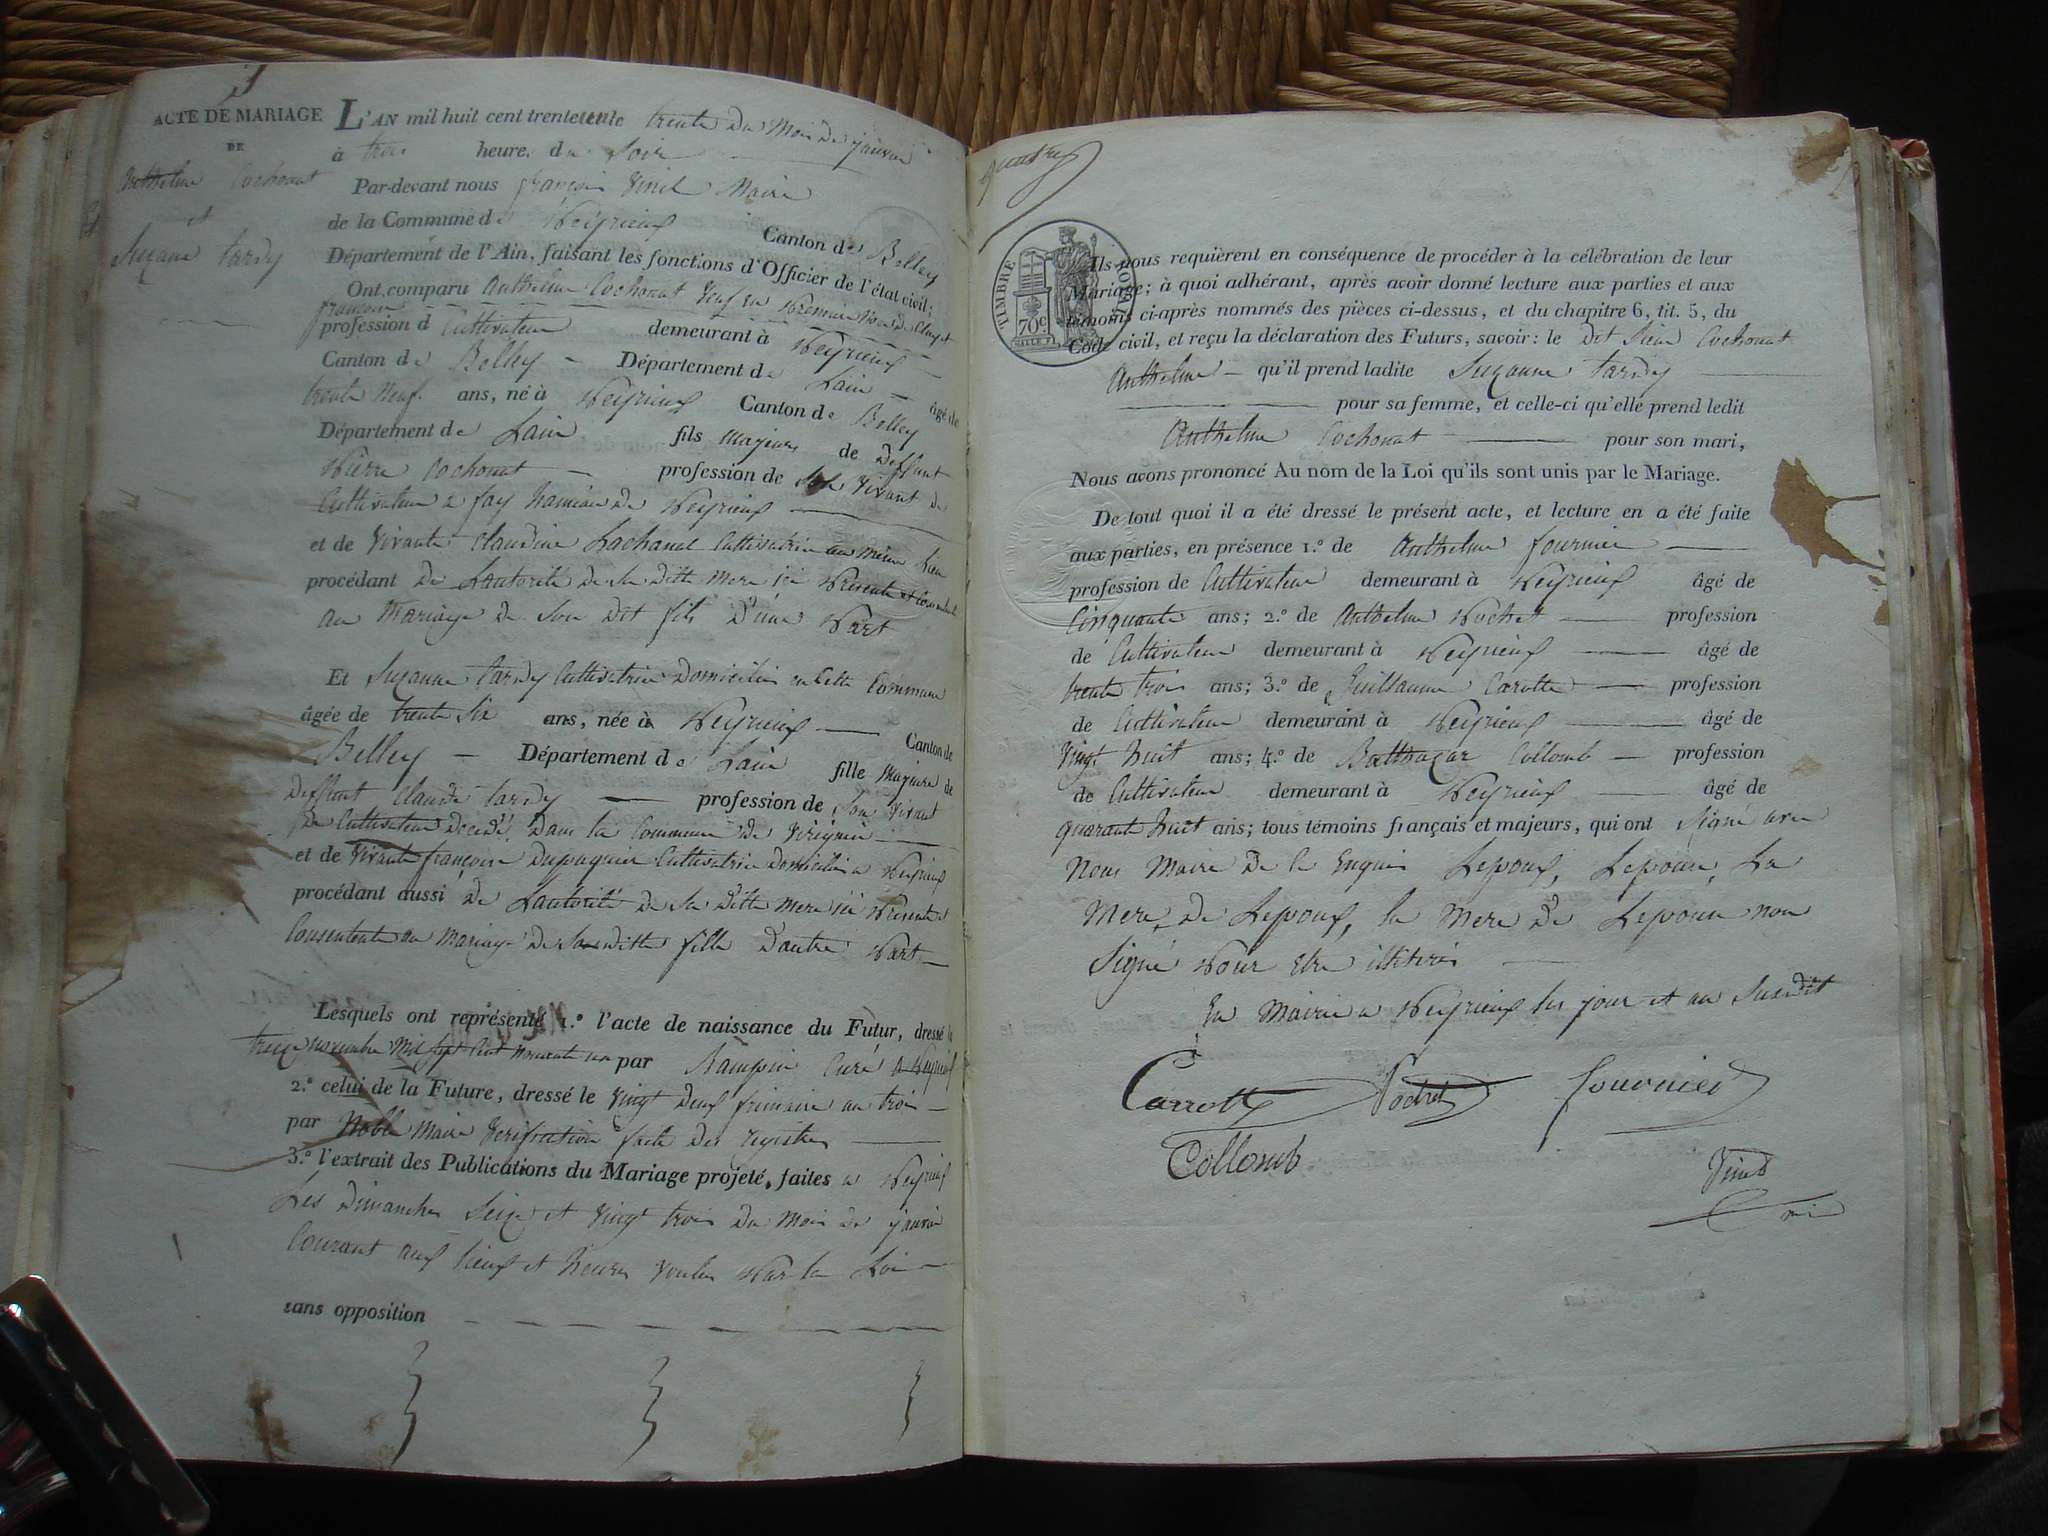 ACTE DE MARIAGE
DE
Anthelme Cochonat
et
Suzane tardy
L'AN mil huit cent trente le trente du Mois de janvier
à trois heure. du Soir
Par-devant nous françois Vinet Maire
de la Commune de Peyrieux Canton de Belley
Département de l'Ain, faisant les fonctions d'Officier de l'état civil;
Ont comparu Anthelme Cochonat Veuf en Premier de
françoise
profession d Cultivateur demeurant à Peyrieux
Canton de Belley Département de Lain âgé de
trente Neuf ans, né à Peyrieux Canton de Belley
Département de Lain fils majeur de deffunt
Pierre Cochonat profession de Son Vivant de
Cultivateur a fay hameau de Peyrieux
et de Vivante Claudine Lachanal Cultivatrice au même lieu
procédant de Lautorité de Sa ditte mere ici Presente et
au Mariage de Son dit fils D'une Part
Et Suzanne tardy Cultivatrice Domiciliée en Cette Commune
âgée de trente Six ans, née à Peyrieux Canton de
Belley Département de Lain fille majeure de
deffunt Claude tardy profession de Son Vivant
de Cultivateur décédé Dans la Commune de Virignin
et de Vivante françoise Dupaquier Cultivatrice domiciliée a Peyrieux
procédant aussi de Lautorité de Sa ditte mere ici Presente
Consentente au Mariage de Saditte fille D'autre Part
Lesquels ont représenté 1.º l'acte de naissance du Futur, dressé le
treize novembre Mil Sept Cent Nonante un par Curé a Peyrieux
2.º celui de la Future, dressé le Vingt Deux frimaire an trois
par Noble Maire Verification faite des registres
3.º l'extrait des Publications du Mariage projeté, faites a Peyrieux
Les dimanches Seize et Vingt trois du Mois de janvier
Courant aux lieux et heures Voulus Par la Loi
sans opposition
quatre
TIMBRE ROYAL
70c.
Ils nous requièrent en conséquence de procéder à la célébration de leur
Mariage; à quoi adhérant, après avoir donné lecture aux parties et aux
témoins ci-après nommés des pièces ci-dessus, et du chapitre 6, tit. 5, du
Code civil, et reçu la déclaration des Futurs, savoir: le Dit Sieur Cochonat
Anthelme qu'il prend ladite Suzanne tardy
pour sa femme, et celle-ci qu'elle prend ledit
Anthelme Cochonat pour son mari,
Nous avons prononcé Au nom de la Loi qu'ils sont unis par le Mariage.
De tout quoi il a été dressé le présent acte, et lecture en a été faite
aux parties, en présence 1.º de Anthelme fournier
profession de Cultivateur demeurant à Peyrieux âgé de
Cinquante ans; 2.º de Anthelme Pochet profession
de Cultivateur demeurant à Peyrieux âgé de
trente trois ans; 3.º de Guillaume Carotte profession
de Cultivateur demeurant à Peyrieux âgé de
Vingt huit ans; 4.º de Balthazar Collomb profession
de Cultivateur demeurant à Peyrieux âgé de
quarante huit ans; tous témoins français et majeurs, qui ont Signé avec
Nous Maire De ce Enquis Lepoux, Lepouse, La
Mere de Lepoux, la Mere de Lepouse non
Signé Pour Etre illitérés
En Mairie a Peyrieux les jour et an Susdit
Carrotte Pochet fournier
Collomb
Vinet